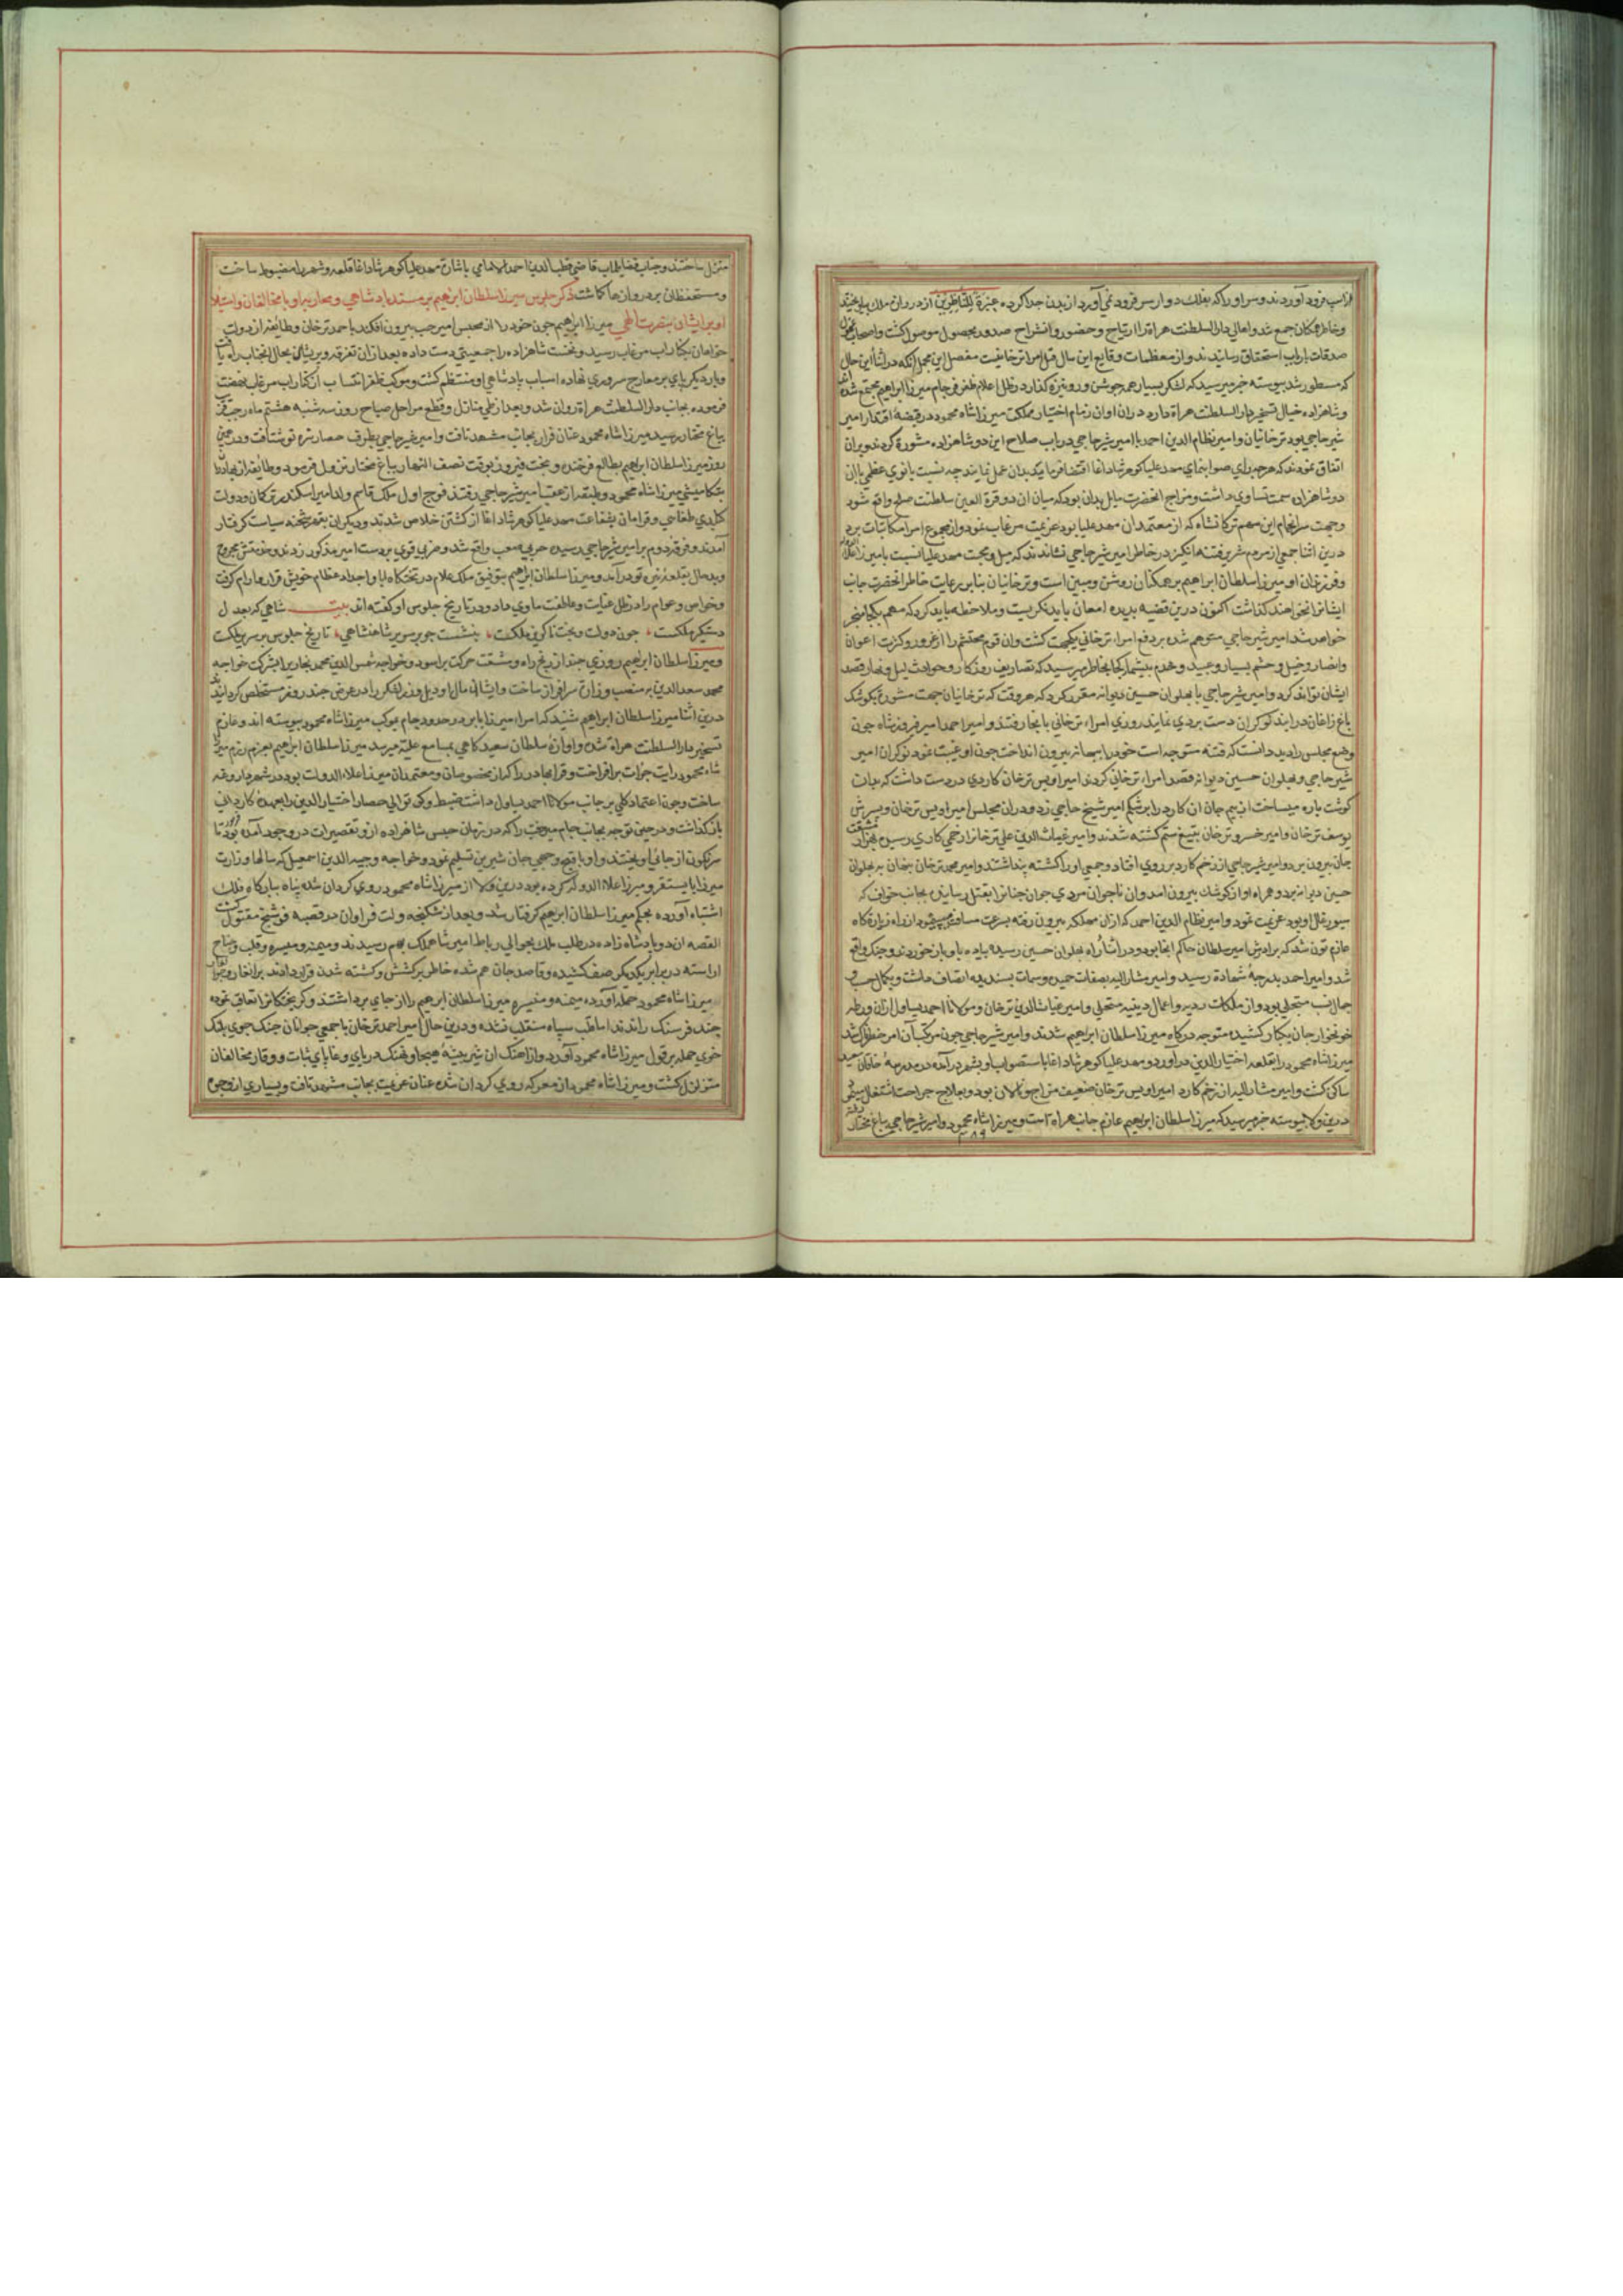 از اسب فرود آوردند و سر او را که بفلک دوار سر فرود نمی آورد از بدن جدا کرده عبرة للناظرین از دروازه ملک بیاویختند
و خاطر همکنان جمع شد و اهالی دار السلطنت هراة را ارتیاح و حضور و انشراح صدور بحصول موصول کشت و اصحاب
صدقات بارباب استحقاق رسانیدند و از معظمات وقایع این سال قتل امراء ترخانیست مفصل این مجمل آنکه در اثنا این حال
که مسطور شد پیوسته خبر میرسید که لشکر بسیار همه جوشن ور و نیزه کذار در ظل اعلام ظفر فرجام میرزا ابراهیم مجتمع شده
و شاهزاده خیال تسخیر دار السلطنت هراة دارد در ان اوان زمام اختیار مملکت میرزا شاه محمود در قبضه اقتدار امیر
شیر حاجی بود ترخانیان و امیر نظام الدین احمد با امیر شیر حاجی در باب صلاح این دو شاهزاده مشورة کردند و بران
اتفاق نمودند که هرچه رای صوابنمای مهد علیا کوهرشاد اغا اقتضا فرماید بدان عمل نمایند چه نسبت بانوی عظمی باان
دو شاهزاده سمت تساوی داشت و مزاج انحضرت مایل بدان بود که میان ان دو قرة العین سلطنت صلح واقع شود
و جهت سرانجام این مهم ترکانشاه که از معتمدان مهد علیا بود عزیمت مرغاب نمود و از مجموع امرا مکاتبات برد
درین اثنا جمعی از مردم شریر فتنه انکیز در خاطر امیر شیر حاجی نشاندند که میل و محبت مهد علیا نسبت بامیرزا علاء الدوله
و فرزندان او میرزا سلطان ابراهیم بر همکنان روشن و مبین است و ترخانیان بنابر رعایت خاطر انحضرت جانب
ایشانرا نخواهند کذاشت اکنون درین قضیه بدیده امعان باید نکریست و ملاحظه باید کرد که مهم بکجا منجر
خواهد شد امیر شیر حاجی متوهم شده بر دفع امراء ترخانی یکجهت کشت وان قوم محتشم را از غرور و کثرت اعوان
و انصار و خیل و حشم بسیار و عبید و خدم بیشمار کجا بخاطر میرسید که تصاریف روزکار و حوادث لیل و نهار قصد
ایشان تواند کرد و امیر شیر حاجی با پهلوان حسین دیوانه مقرر کرد که هر وقت که ترخانیان جهت مشورة بکوشک
باغ زاغان درایند نوکران دست بردی نمایند روزی امراء ترخانی بانجا رفتند و امیر احمد امیر فیروزشاه چون
وضع مجلس را دید دانست که فتنه متوجه است خود را ببهانه بیرون انداخت چون او غیبت نمود نوکران امیر
شیر حاجی و پهلوان حسین دیوانه قصد امراء ترخانی کردند امیر اویس ترخان کاردی در دست داشت که بدان
کوشت پاره میساخت از بیم جان ان کارد را بر شکم امیر شیخ حاجی زد و دران مجلس امیر اویس ترخان و پسرش
یوسف ترخان و امیر خسرو ترخان بتیغ ستم کشته شدند و امیر غیاث الدین علی ترخان را زخمی کاری رسید بهزار مشقت
جان بیرون برد و امیر شیر حاجی از زخم کارد بر روی افتاد و جمعی او را کشته پنداشتند و امیر محمد ترخان پنهان بر پهلوان
حسین دیوانه بود همراه او از کوشک بیرون امد وان ناجوان مردی جوان چنانرا بقتل رسانید بجانب خواف که
سیورغال او بود عزیمت نمود و امیر نظام الدین احمد که ازان مهلکه بیرون رفته بسرعت مسافت می پیمود از راه زیارة کاه
عازم تون شد که برادرش امیر سلطان حاکم انجا بود و در اثناء راه پهلوان حسین رسیده باو باز خوردند و جنک واقع
شد و امیر احمد بدرجه شهادة رسید و امیر مشار الیه بصفات حمیده و سمات پسندیده اتصاف داشت و بکمال حسب و
جمال نسب متحلی بود و از ملکات ردیه و اعمال دینیه متخلی و امیر غیاث الدین ترخان و مولانا احمد یساول ازان ورطه
خونخوار جان بکنار کشیده متوجه درکاه میرزا سلطان ابراهیم شدند و امیر شیر حاجی چون مرتکب آن امر خطرناک شد
میرزا شاه محمود را بقلعه اختیار الدین در آورد و مهد علیا کوهرشاد اغا باستصواب او بشهر درآمده در مدرسه خاقان سعید
ساکن کشت و امیر مشار الیه از زخم کارد امیر اویس ترخان ضعیف مزاج و نالان بود و بعلاج جراحت اشتغال مینمود
درین ولا پیوسته خبر میرسید که میرزا سلطان ابراهیم عازم جانب هراة است و میرزا شاه محمود و امیر شیر حاجی بباغ مختار رفته
منزل ساختند و جناب فضایل ماب قاضی قطب الدین احمد الامامی باشارة مهد علیا کوهرشاد اغا قلعه و شهر را مضبوط ساخت
و مستحفظان بر دروازها کماشت ذکر جلوس میرزا سلطان ابراهیم بر مسند پادشاهی و محاربه او با مخالفان و استیلا
او بر ایشان بنصرت الهی میرزا ابراهیم چون خود را از مجلس امیر حب بیرون افکند با احمد ترخان و طایفه از دولت
خواهان بکنار اب مرغاب رسید و نخست شاهزاده را جمعیتی دست داده بعد ازان تفرقه و پریشانی بحال انجناب راه یافت
و بار دیکر پای بر معارج سروری نهاده اسباب پادشاهی او منتظم کشت و موکب ظفر انتساب از کنار اب مرغاب نهضت
فرموده بجانب دار السلطنت هراة روان شد و بعد از طی منازل و قطع مراحل صباح روز سه شنبه هشتم ماه رجب
بباغ مختار رسید میرزا شاه محمود عنان فرار بجانب مشهد تافت و امیر شیر حاجی بطرف حصار نره تو شتافت و در همین
روز میرزا سلطان ابراهیم بطالع فرخنده و بخت فیروز بوقت نصف النهار بباغ مختار نزول فرمود و طایفه از بهادران
بتکامیشی میرزا شاه محمود و طبقه از عقب امیر شیر حاجی رفتند فوج اول ملک قاسم ولد امیر اسکندر ترکمان و دولت
کلدی طغاجی و قرامان بشفاعت مهد علیا کوهرشاد اغا از کشتن خلاص شدند و دیکران بقهر شحنه سیاست کرفتار
آمدند و فرقه دوم بر امیر شیر حاجی رسیده حربی صعب واقع شد و ضربی قوی بر دست امیر مذکور زدند و دستش مجروح
و بدحال بقلعه نره تو درآمد و میرزا سلطان ابراهیم بتوفیق ملک علام در تختکاه ابا و اجداد عظام خویش قرار و آرام کرفت
و خواص و عوام را در ظل عنایت و عاطفت ماوی داد و در تاریخ جلوس او کفته اند بیت شاهی که بعدل
دستکیر ملکست چون دولت و بخت ناکزیر ملکست بنشست چو بر سریر شاهنشاهی تاریخ جلوس بر سریر ملکست
و میرزا سلطان ابراهیم روزی چند از رنج راه و مشقت حرکت براسود و خواجه شمس الدین محمد بخاری را بشرکت خواجه
محمد سعد الدین بر منصب وزارة سرافراز ساخت و ایشان مال اردبیل و زر لشکر را در عرض چند روز مستخلص کردانیدند
درین اثنا میرزا سلطان ابراهیم شنید که امراء میرزا بابر در حدود جام بموکب میرزا شاه محمود پیوسته اند و عازم
تسخیر دار السلطنت هراة شده و اوازه سلطان سعید کاهی بمسامع علیه میرسد میرزا سلطان ابراهیم بعزم رزم میرزا
شاه محمود رایت جرات برافراخت و قرا بهادر را که از مخصوصان و معتمدان میرزا علاء الدولت بود در شهر داروغه
ساخت و چون اعتماد کلی بر جانب مولانا احمد یساول داشت ضبط و کوتوالی حصار اختیار الدین را بعهده کاردانی
باز کذاشت و در حین توجه بجانب جام میرحب را که در زمان حبس شاهزاده ازو تقصیرات در وجود آمده بود
سرنکون از جائی اویختند و او باقبح وجهی جان شیرین تسلیم نمود و خواجه وجیه الدین اسمعیل که سالها وزارت
میرزا بایسنقر و میرزا علا الدوله کرده بود درین ولا از میرزا شاه محمود روی کردان شده پناه ببارکاه فلک
اشتباه آورده بحکم میرزا سلطان ابراهیم کرفتار شد و بعد از شکنجه و لت فراوان در قصبه فوشنج مقتول کشت
القصه ان دو پادشاه زاده در طلب ملک بحوالی رباط امیر شاهملک بهم رسیدند و میمنه و میسره و قلب و جناح
اراسته در برابر یکدیکر صف کشیده و قاصد جان هم شده خاطر بر کشش و کشته شدن قرار دادند
میرزا شاه محمود حمله آورده میمنه و میسره میرزا سلطان ابراهیم را از جای برداشتند و کریختکانرا تعاقب نموده
چند فرسنک راندند اما قلب سپاه منقلب نشده و درین حال امیر احمد ترخان با جمعی جوانان جنک جوی پلنک
خوی حمله بر قول میرزا شاه محمود آورد و از اهنک ان شیر بیشه هیجا و نهنک دریای وغا پای ثبات و وقار مخالفان
متزلزل کشت و میرزا شاه محمود از معرکه روی کردان شده عنان عزیمت بجانب مشهد تافت و بسیاری از وجوه